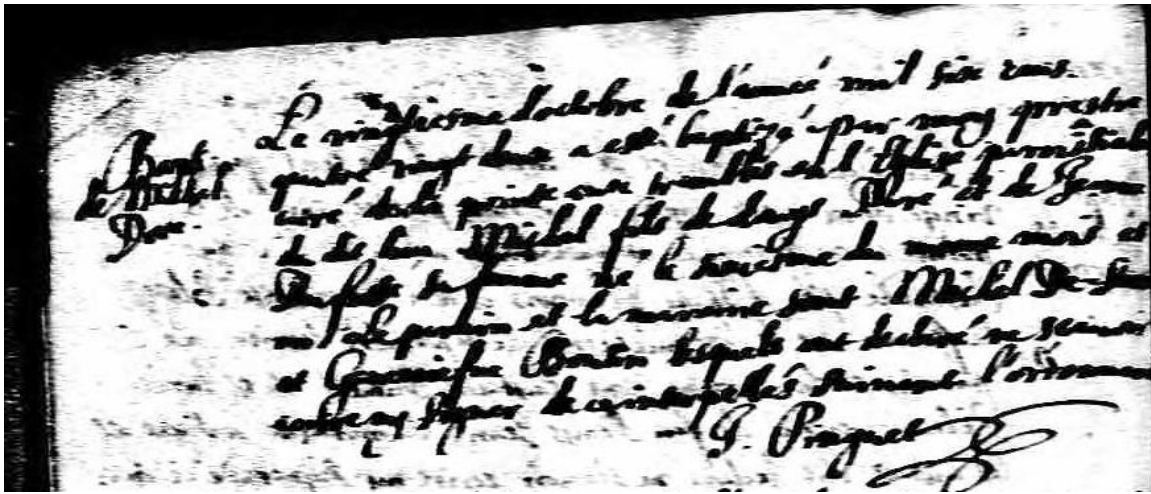 Bapt.
de Michel
Doré.
Le vingtiesme d'octobre de l'année mil six cens
quatre vingt douze a esté baptizé par moy prestre
curé de la pointe aux trembles en l'Eglise parroissiale
du dit lieu Michel fils de Louys Doré et de Jeanne
Du fossé sa femme né le sixiesme du mesme mois et
an Le parain et la maraine sont Michel
et Geneviefve lesquels ont declaré ne scavoir
signer de ce interpellés suivant l'ordonnance
J. Pinguet